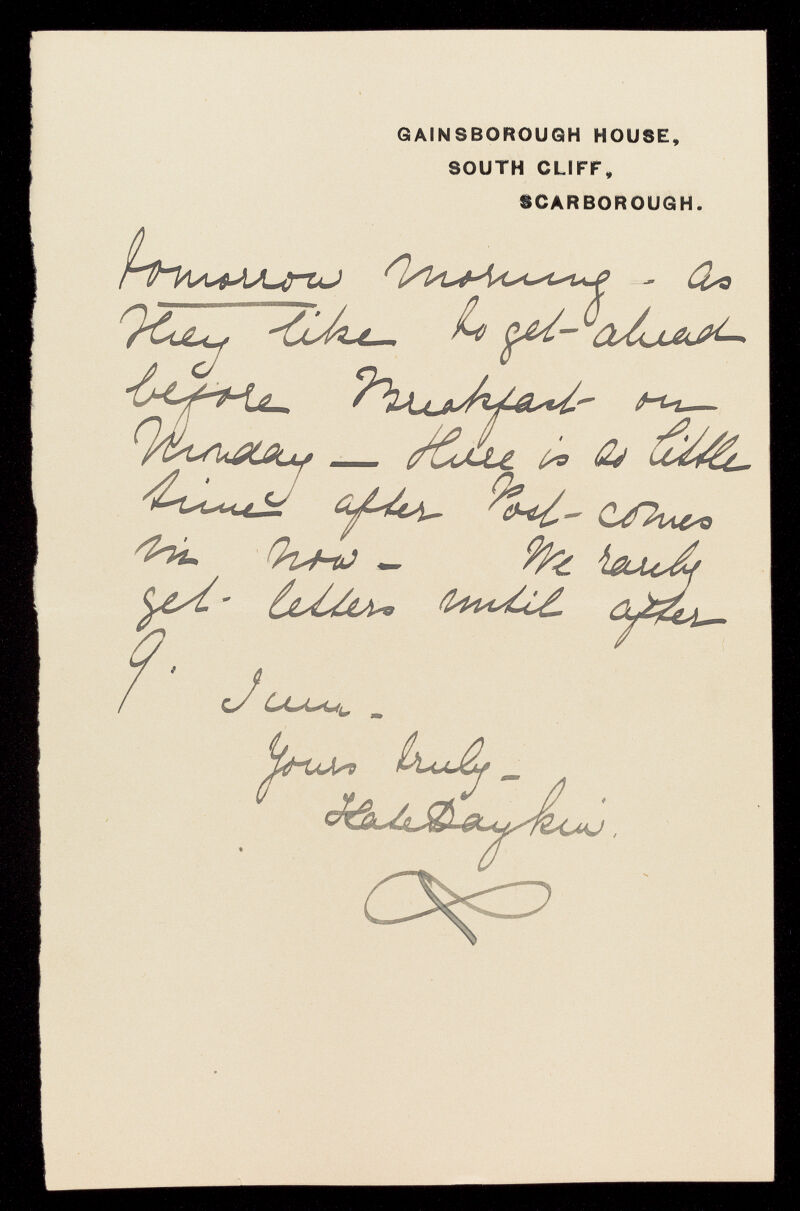 GAINSBOROUGH HOUSE,
SOUTH CLIFF,
SCARBOROUGH.
tomorrow morning - as
they like to get ahead
before Breakfast on
Monday — there is so little
time after Post comes
in now - We rarely
get letters until after
9.
I am -
Yours truly -
Kate Daykin.